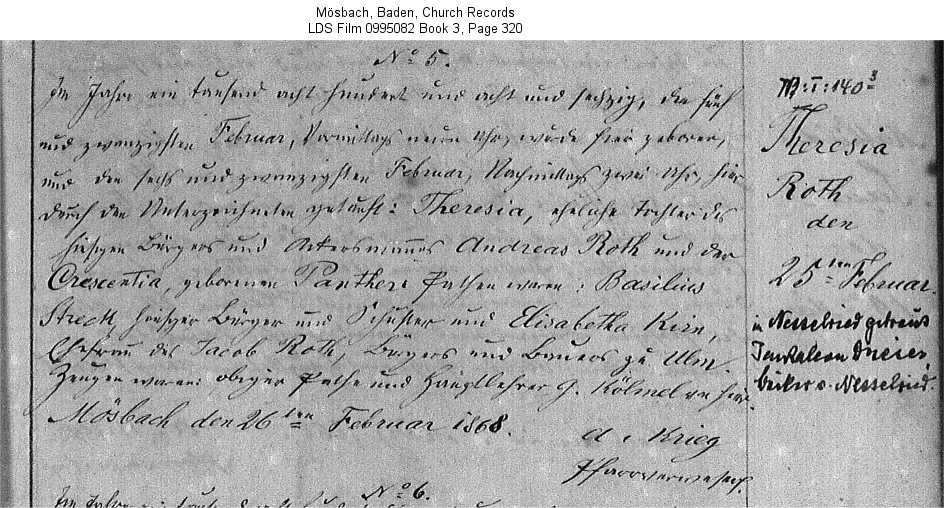 Mösbach, Baden, Church Records
LDS Film 0995082 Book 3, Page 320
No 5.
Im Jahre ein tausend acht hundert und acht und sechzig, den fünf
und zwanzigsten Februar, Vormittags neun Uhr, wurde hier geboren,
und den sechs und zwanzigsten Februar, Nachmittags zwei Uhr, hier
durch den Unterzeichneten getauft: Theresia, eheliche Tochter des
hiesigen Bürgers und Ackersmannes Andreas Roth und der
Crescentia, geborenen Panther. Pathen waren: Basilius
Streck, hiesiger Bürger und Schuster und Elisabetha Kern,
Ehefrau des Jacob Roth, Bürgers und Bauers zu Ulm.
Zeugen waren: obiger Pathe und Hauptlehrer G. Kölmel von hier.
Mösbach den 26ten Februar 1868.
Krieg
Pfarrverweser.
No 6.
Im Jahre ein tausend acht hundert
: I : 140
Theresia
Roth
den
25ten Februar.
in Nesselried getraut
v. Nesselried.